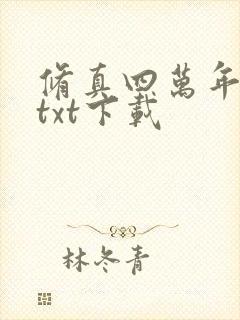 脩真四萬年
txt下載
林冬青